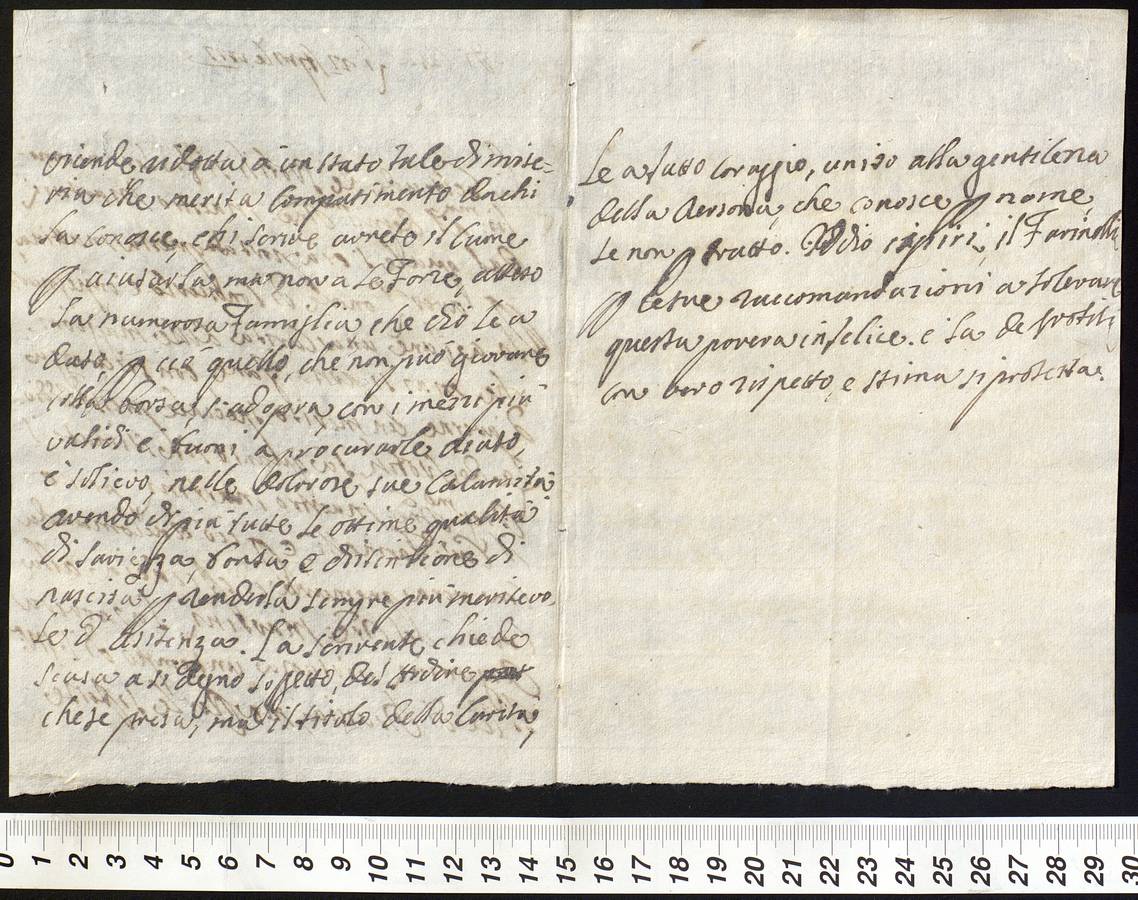 vicende ridotta à un stato tale di mise-
ria che merita Compatimento da chi
la conosce, chi scrive avrebe il Cume
p aiutarla ma non a le Forze, atteso
la numerosa Famiglia che Dio le a
dato, p ciò quello, che non può giovare
colla borsa, s'adopra con i mezzi più
validi e buoni a procurarle aiuto,
e solievo, nelle dolorose sue Calamità
avendo di più tutte le ottime qualità
di saviezza, bontà, e distintione di
nascita p renderla sempre più meritevo
le d'asistenza. La scrivente chiede
scusa a sì degno sogetto, del ardire
che se presa, ma il titolo della Carità,
le a fatto coraggio, unito alla gentilezza
della Persona, che conosce p nome
se non p tratto. Iddio ispiri, il Farinelli
p le sue raccomandazioni a solevare
questa povera infelice. e la
con vero rispetto, e stima si protesta.
0 1 2 3 4 5 6 7 8 9 10 11 12 13 14 15 16 17 18 19 20 21 22 23 24 25 26 27 28 29 30